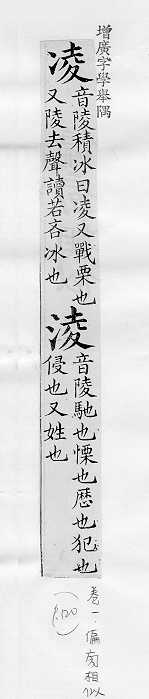 增廣字學舉隅
凌
音陵積冰曰凌又戰栗也
又陵去聲讀若吝冰也
淩
音陵馳也慄也歴也犯也
侵也又姓也
卷一.偏旁相似
(P.120)